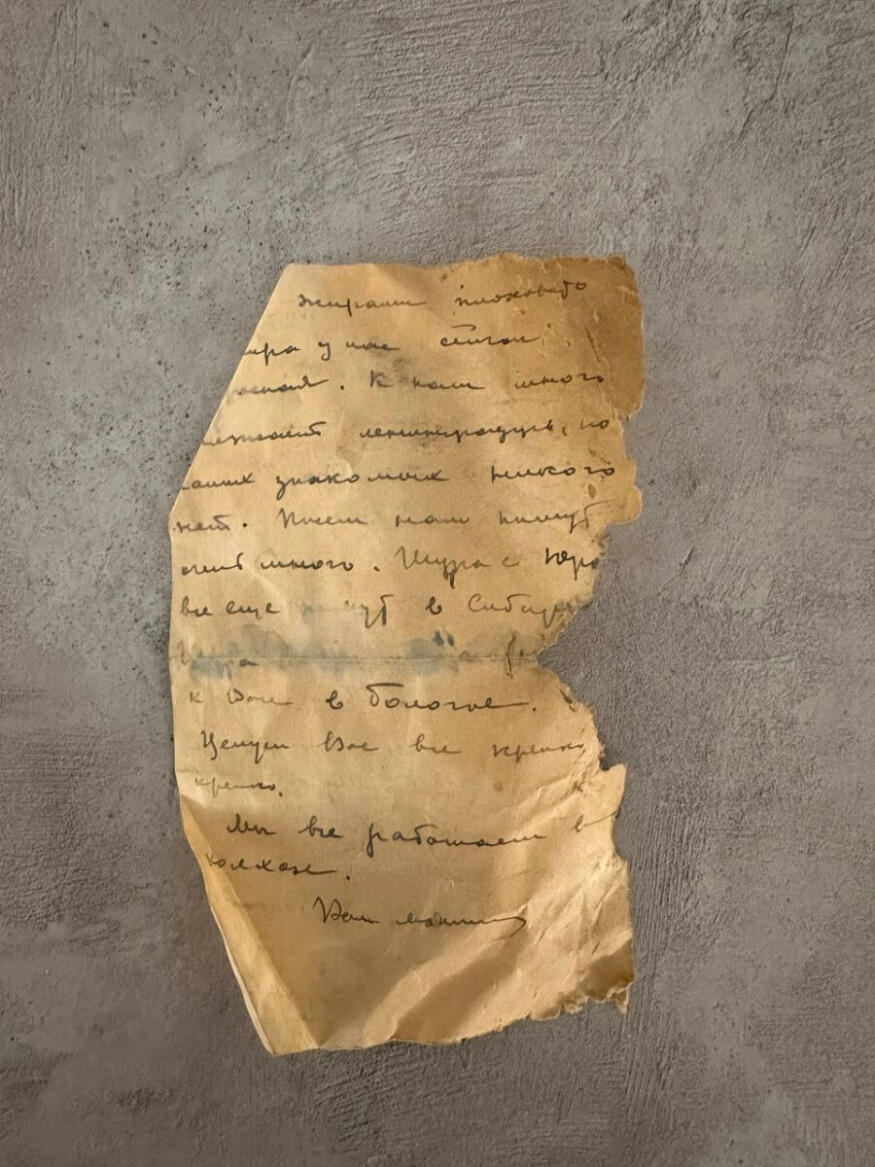 жирами плоховато
у нас
. К нам много
ленинградцев, но
наших знакомых никого
нет. Писем нам пишут
очень много. Шура с Юро
все еще в Сибири
к Вам в Бологое.
Целуем Вас все крепко
крепко.
Мы все работаем в
колхозе.
Ваш